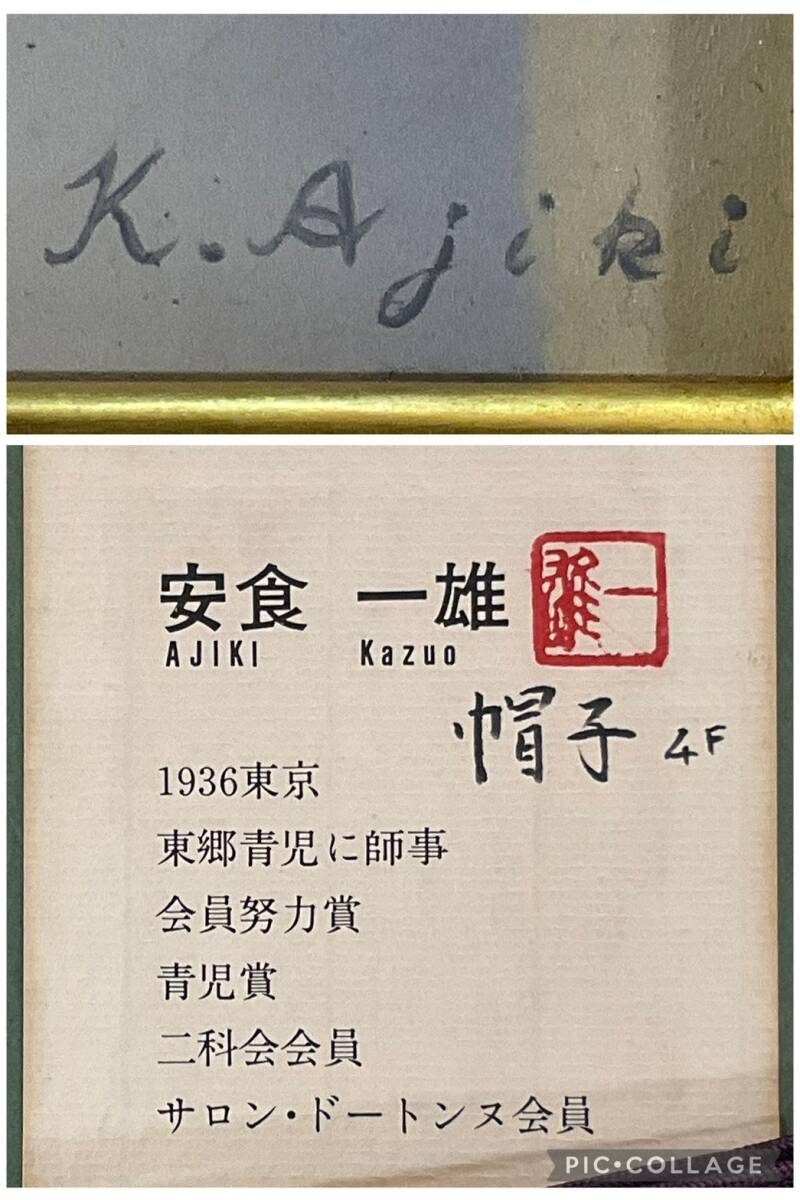 K. Ajiki
安食 一雄
AJIKI Kazuo
一雄
帽子 4F
1936東京
東郷青児に師事
会員努力賞
青児賞
二科会会員
サロン・ドートンヌ会員
PIC•COLLAGE